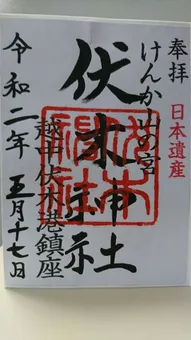 奉拝
日本遺産
けんか山の宮
伏木神社
越中伏木港鎮座
令和二年 五月十七日